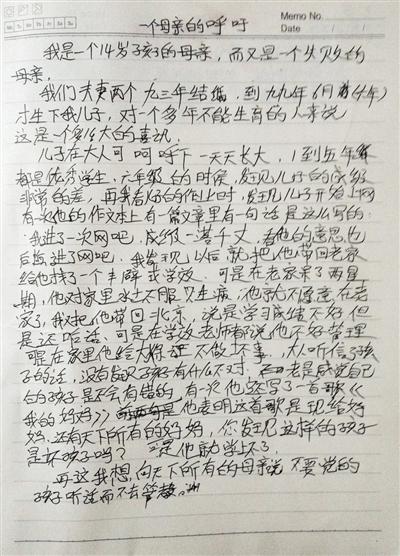 一个母亲的呼吁
Memo No.
Date / /
我是一个14岁孩子的母亲，而又是一个失败的
母亲。
我们夫妻两个九三年结婚，到九九年6月
才生下我儿子，对一个多年不能生育的人来说
这是个多么大的喜讯，
儿子在大人呵呵呼下一天天长大，1到五年级
都是优秀学生，六年级的时候，发现儿子的成绩
非常的差，再我看他的作业时，发现儿子开始上网
有次他的作文本上有一篇文章里有一句话是这么写的：
“我进了一次网吧，成绩一落千丈，看他的意思也
后悔进了网吧，我发现以后就把他带回老家
给他找了一个半封式学校，可是在老家呆了两星
期，他对家里水土不服只生病，他就不愿意在老
家了，我又把他带回北京，说是学习成绩不好但
是还哈，可是在学校老师都说他不好管理
可是在家里他给大人保证不做坏事，大人听信了孩
子的话，没有发现孩子有什么不对，老是感觉自己
的孩子是不会有错的，有次他还写了一首歌《
我的妈妈》他表明这首歌是现给妈
妈，还有天下所有的妈妈，你发现这样的孩子
是坏孩子吗？他就学坏了，
再这我想，向天下所有的母亲说不要觉的
孩子听话而不去管教。